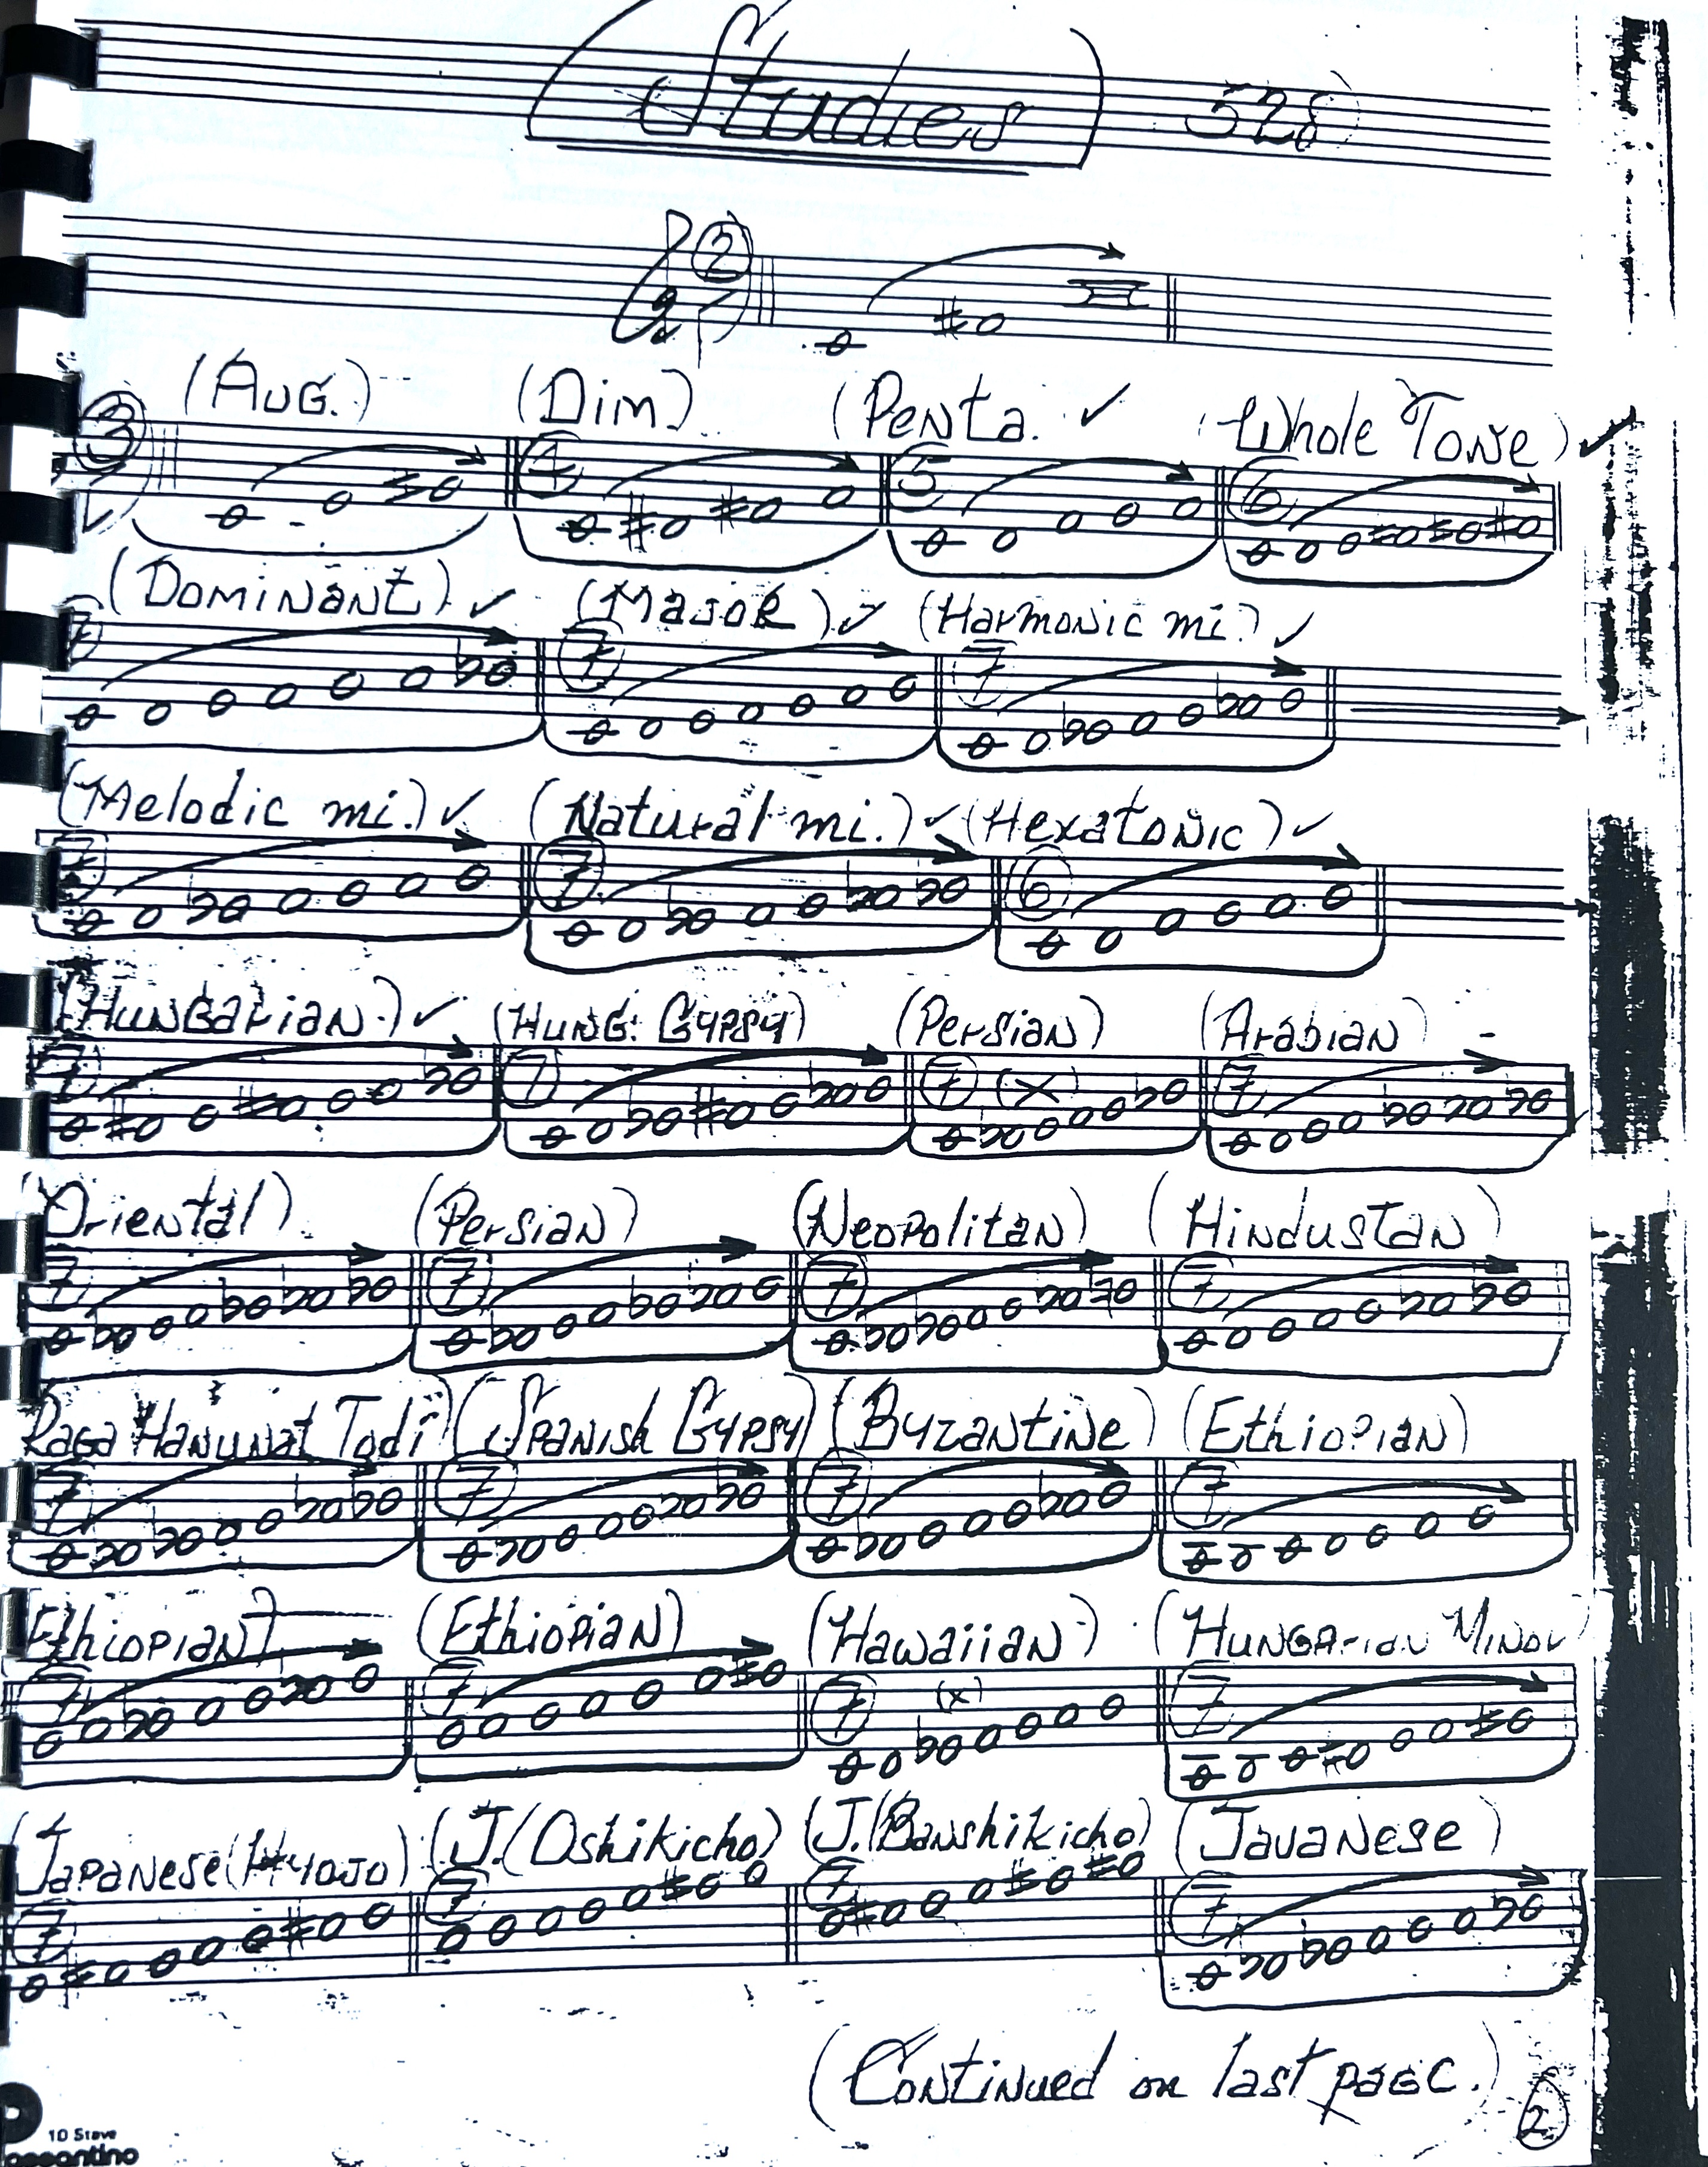 Studies 528
2
(Aug.) (Dim) (Penta. ✓ (Whole Tone) ✓
3 4 5 6
(Dominant) ✓ (Major) ✓ (Harmonic mi.) ✓
7 7 7
(Melodic mi.) ✓ (Natural mi.) ✓ (Hexatonic) ✓
7 7 6
(Hungarian) ✓ (Hung. Gypsy) (Persian) (Arabian)
7 7 7 (x) 7
(Oriental) (Persian) (Neopolitan) (Hindustan)
7 7 7 7
Raga Hanunat Todi (Spanish Gypsy) (Byzantine) (Ethiopian)
7 7 7 7
(Ethiopian) (Ethiopian) (Hawaiian) (Hungarian Minor)
7 7 7 (x) 7
(Japanese (Hyojo) (J. (Oshikicho) (J. (Banshikicho) (Javanese)
7 7 7 7
(Continued on last page.) 2
10 Stave